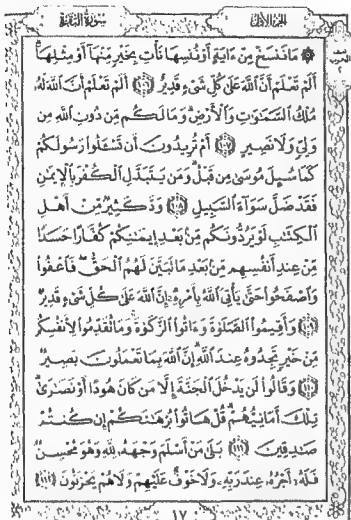 الجزء الأول
سورة البقرة
۞ مَا نَنسَخْ مِنْ ءَايَةٍ أَوْ نُنسِهَا نَأْتِ بِخَيْرٍ مِّنْهَآ أَوْ مِثْلِهَآ
أَلَمْ تَعْلَمْ أَنَّ ٱللَّهَ عَلَىٰ كُلِّ شَىْءٍ قَدِيرٌ ﴿١٠٦﴾ أَلَمْ تَعْلَمْ أَنَّ ٱللَّهَ لَهُۥ
مُلْكُ ٱلسَّمَٰوَٰتِ وَٱلْأَرْضِ وَمَا لَكُم مِّن دُونِ ٱللَّهِ مِن
وَلِىٍّ وَلَا نَصِيرٍ ﴿١٠٧﴾ أَمْ تُرِيدُونَ أَن تَسْـَٔلُوا۟ رَسُولَكُمْ
كَمَا سُئِلَ مُوسَىٰ مِن قَبْلُ وَمَن يَتَبَدَّلِ ٱلْكُفْرَ بِٱلْإِيمَٰنِ
فَقَدْ ضَلَّ سَوَآءَ ٱلسَّبِيلِ ﴿١٠٨﴾ وَدَّ كَثِيرٌ مِّنْ أَهْلِ
ٱلْكِتَٰبِ لَوْ يَرُدُّونَكُم مِّنۢ بَعْدِ إِيمَٰنِكُمْ كُفَّارًا حَسَدًا
مِّنْ عِندِ أَنفُسِهِم مِّنۢ بَعْدِ مَا تَبَيَّنَ لَهُمُ ٱلْحَقُّ فَٱعْفُوا۟
وَٱصْفَحُوا۟ حَتَّىٰ يَأْتِىَ ٱللَّهُ بِأَمْرِهِۦٓ إِنَّ ٱللَّهَ عَلَىٰ كُلِّ شَىْءٍ قَدِيرٌ
﴿١٠٩﴾ وَأَقِيمُوا۟ ٱلصَّلَوٰةَ وَءَاتُوا۟ ٱلزَّكَوٰةَ وَمَا تُقَدِّمُوا۟ لِأَنفُسِكُم
مِّنْ خَيْرٍ تَجِدُوهُ عِندَ ٱللَّهِ إِنَّ ٱللَّهَ بِمَا تَعْمَلُونَ بَصِيرٌ
﴿١١٠﴾ وَقَالُوا۟ لَن يَدْخُلَ ٱلْجَنَّةَ إِلَّا مَن كَانَ هُودًا أَوْ نَصَٰرَىٰ
تِلْكَ أَمَانِيُّهُمْ قُلْ هَاتُوا۟ بُرْهَٰنَكُمْ إِن كُنتُمْ
صَٰدِقِينَ ﴿١١١﴾ بَلَىٰ مَنْ أَسْلَمَ وَجْهَهُۥ لِلَّهِ وَهُوَ مُحْسِنٌ
فَلَهُۥٓ أَجْرُهُۥ عِندَ رَبِّهِۦ وَلَا خَوْفٌ عَلَيْهِمْ وَلَا هُمْ يَحْزَنُونَ ﴿١١٢﴾
١٧